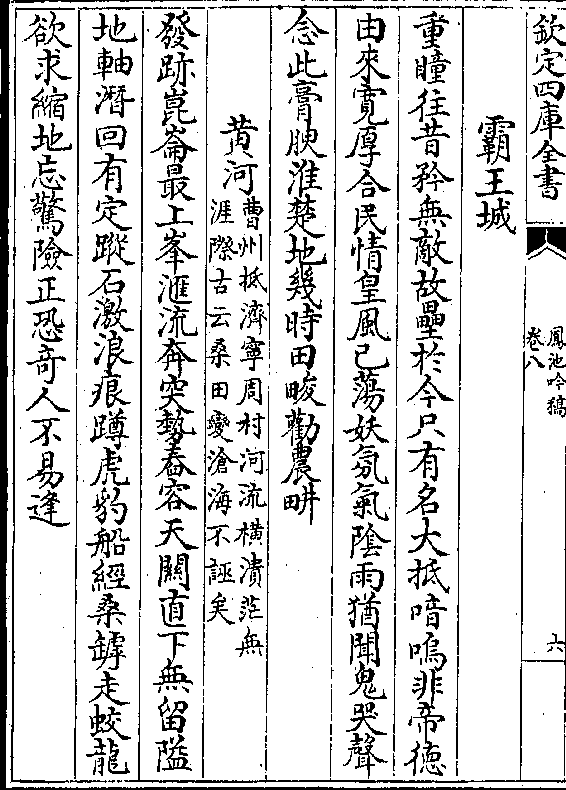 欽定四庫全書
鳳池吟稿
卷八
六
霸王城
重瞳往昔矜無敵故壘於今只有名大抵喑嗚非帝德
由來寬厚合民情皇風已蕩妖氛氣陰雨猶聞鬼哭聲
念此膏腴淮楚地幾時田畯勸農畊
黄河曹州抵濟寧周村河流橫潰茫無
涯際古云桑田變滄海不誣矣
發跡崑崙最上峯滙流奔突勢舂容天闗直下無留隘
地軸潛回有定蹤石激浪痕蹲虎豹船經桑罅走蛟龍
欲求縮地忘驚險正恐竒人不易逢